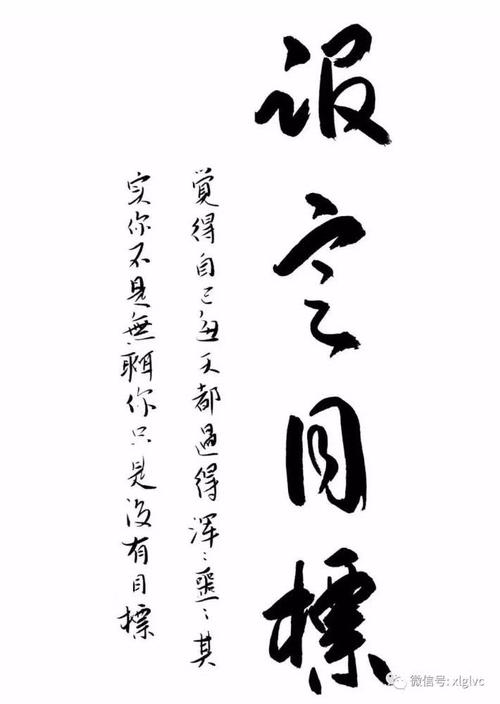 设定目標
覚得自己每天都過得浑〻噩〻其
实你不是無聊你只是没有目標
微信号: xlglvc